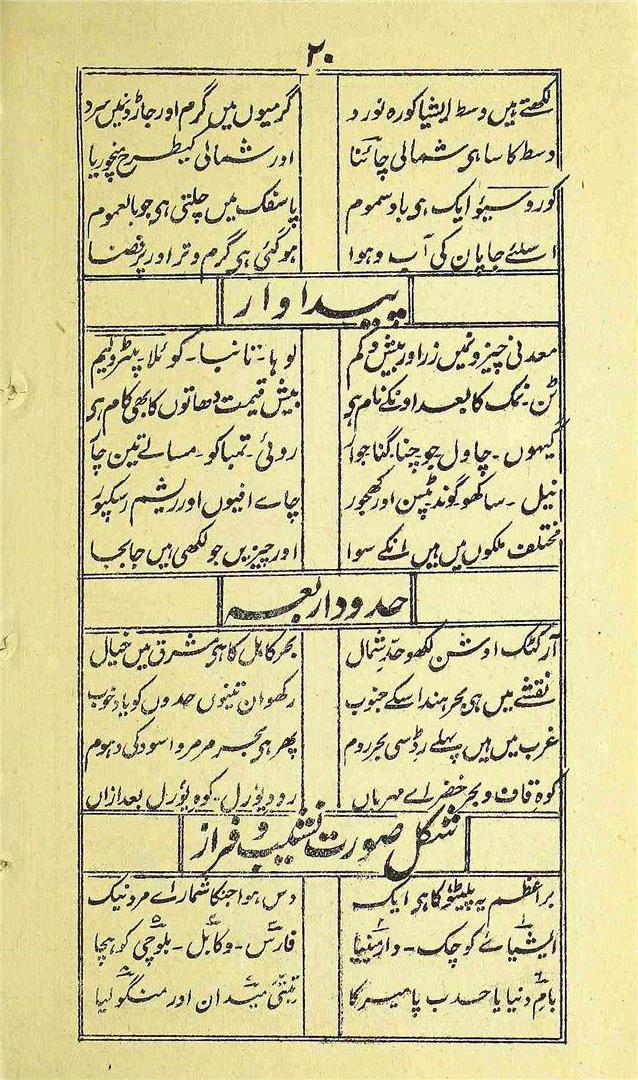 ۲۰
لکھتے ہیں وسط ایشیا کو رہ نورد
گرمیوں میں گرم اور جاڑونمیں سرد
وسط کا سا ہی شمالی چائنا
اور شمالی کیطرح منچوریا
کوروسیو ایک ہی باد سموم
پاسفک میں چلتی ہی جو بالعموم
اسلئے جاپان کی آب و ہوا
ہو گئی ہی گرم و تر اور پر فضا
پیداوار
معدنی چیزونمیں زر اور بیش و کم
لوہا۔ تانبا۔ کوئلا۔ پیٹرولیم
ٹن۔ نمک کا بعد اونکے نام ہی
بیش قیمت دھاتوں کا بھی کام ہی
گیہوں۔ چاول جو چنا۔ گنا جوار
روئی۔ تمباکو۔ مسالے تین چار
نیل۔ ساکھو گوند ٹپن اور کھجور
چاے افیوں اور ریشم
مختلف ملکوں میں ہیں انکے سوا
اور چیزیں جو لکھی ہیں جابجا
حدود اربعہ
آرکٹک اوشن لکھو حدِ شمال
بحر کاہل کا ہی مشرق میں خیال
نقشے میں ہی بحر ہند اسکے جنوب
رکھو ان تینوں حدوں کو یاد خوب
غرب میں ہیں پہلے رڈسی بحر روم
پھر ہی بحر مرمر و اسود کی دہوم
کوہِ قاف و بحر خضر اے مہرباں
رود یورل۔ کوہ یورل بعد ازاں
شکل صورت نشیب و فراز
براعظم یہ پلیٹو کا ہی ایک
دس ہوا جنکا شمار اے مرد نیک
ایشیاے کوچک۔ و ارمنیا
فارس۔ و کابل۔ بلوچی کو ہچا
بام دنیا یا حدب پامیر کا
تبتی میدان اور منگولیا